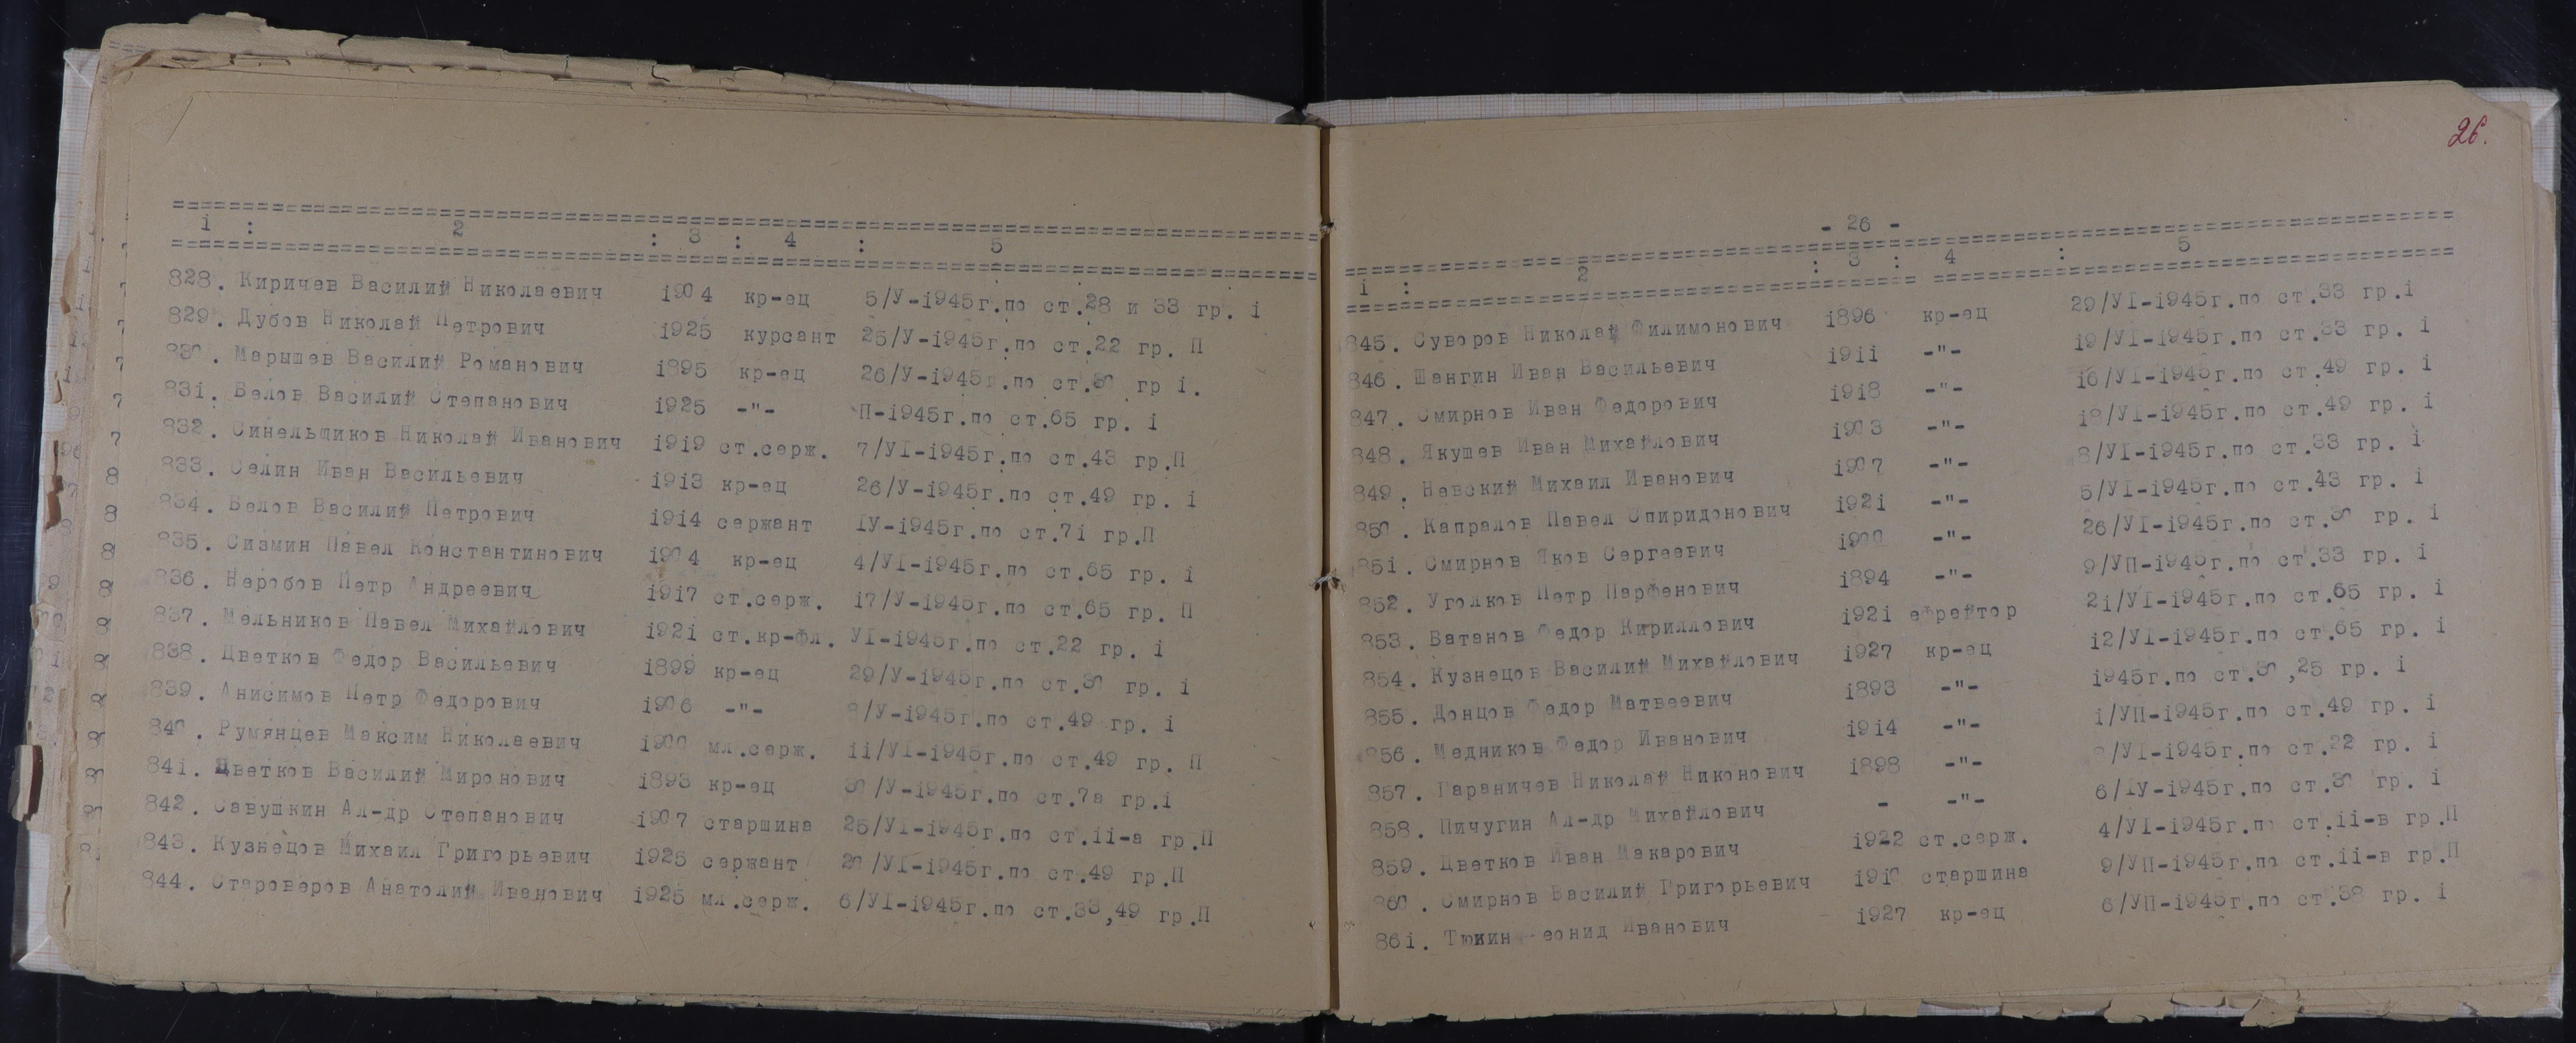 1 : 2 : 3 : 4 : 5
828. Киричев Василий Николаевич 1904 кр-ец 5/У-1945г.по ст.28 и 33 гр. 1
829. Дубов Николай Петрович 1925 курсант 25/У-1945г.по ст.22 гр. П
830. Марышев Василий Романович 1895 кр-ец 26/У-1945г.по ст.30 гр 1.
831. Белов Василий Степанович 1925 -"- П-1945г.по ст.65 гр. 1
832. Синельщиков Николай Иванович 1919 ст.серж. 7/У1-1945г.по ст.43 гр.П
833. Селин Иван Васильевич 1913 кр-ец 26/У-1945г.по ст.49 гр. 1
834. Белов Василий Петрович 1914 сержант 1У-1945г.по ст.71 гр.П
835. Сизмин Павел Константинович 1904 кр-ец 4/У1-1945г.по ст.65 гр. 1
836. Неробов Петр Андреевич 1917 ст.серж. 17/У-1945г.по ст.65 гр. П
837. Мельников Павел Михайлович 1921 ст.кр-фл. У1-1945г.по ст.22 гр. 1
838. Цветков Федор Васильевич 1899 кр-ец 29/У-1945г.по ст.30 гр. 1
839. Анисимов Петр Федорович 1906 -"- 8/У-1945г.по ст.49 гр. 1
840. Румянцев Максим Николаевич 1900 мл.серж. 11/У1-1945г.по ст.49 гр. П
841. Цветков Василий Миронович 1893 кр-ец 30/У-1945г.по ст.7а гр.1
842. Савушкин Ал-др Степанович 1907 старшина 25/У1-1945г.по ст.11-а гр.П
843. Кузнецов Михаил Григорьевич 1925 сержант 20/У1-1945г.по ст.49 гр.П
844. Староверов Анатолий Иванович 1925 мл.серж. 6/У1-1945г.по ст.33,49 гр.П
26.
- 26 -
1 : 2 : 3 : 4 : 5
845. Суворов Николай Филимонович 1896 кр-ец 29/У1-1945г.по ст.33 гр.1
846. Шангин Иван Васильевич 1911 -"- 19/У1-1945г.по ст.33 гр. 1
847. Смирнов Иван Федорович 1918 -"- 16/У1-1945г.по ст.49 гр. 1
848. Якушев Иван Михайлович 1903 -"- 18/У1-1945г.по ст.49 гр. 1
849. Невский Михаил Иванович 1907 -"- 8/У1-1945г.по ст.33 гр. 1
850. Капралов Павел Спиридонович 1921 -"- 5/У1-1945г.по ст.43 гр. 1
851. Смирнов Яков Сергеевич 1900 -"- 26/У1-1945г.по ст.30 гр. 1
852. Уголков Петр Парфенович 1894 -"- 9/УП-1945г.по ст.33 гр. 1
853. Ватанов Федор Кириллович 1921 ефрейтор 21/У1-1945г.по ст.65 гр. 1
854. Кузнецов Василий Михайлович 1927 кр-ец 12/У1-1945г.по ст.65 гр. 1
855. Донцов Федор Матвеевич 1893 -"- 1945г.по ст.30,25 гр. 1
856. Медников Федор Иванович 1914 -"- 1/УП-1945г.по ст.49 гр. 1
857. Гараничев Николай Никонович 1898 -"- /У1-1945г.по ст.22 гр. 1
858. Пичугин Ал-др Михайлович - -"- 6/1У-1945г.по ст.30 гр. 1
859. Цветков Иван Макарович 1922 ст.серж. 4/У1-1945г.по ст.11-в гр.П
860. Смирнов Василий Григорьевич 1910 старшина 9/УП-1945г.по ст.11-в гр.П
861. Тюкин еонид Иванович 1927 кр-ец 6/УП-1945г.по ст.38 гр. 1